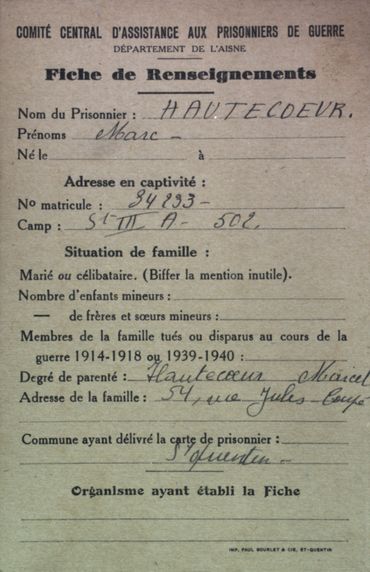 COMITÉ CENTRAL D'ASSISTANCE AUX PRISONNIERS DE GUERRE
DÉPARTEMENT DE L'AISNE
Fiche de Renseignements
Nom du Prisonnier : HAUTECOEUR.
Prénoms Marc -
Né le à
Adresse en captivité :
No matricule : 34293 -
Camp : St III A - 502.
Situation de famille :
Marié ou célibataire. (Biffer la mention inutile).
Nombre d'enfants mineurs :
— de frères et sœurs mineurs :
Membres de la famille tués ou disparus au cours de la
guerre 1914-1918 ou 1939-1940 :
Degré de parenté : Hautecœur Marcel
Adresse de la famille : 54, rue Jules
Commune ayant délivré la carte de prisonnier :
St quentin -
Organisme ayant établi la Fiche
IMP. PAUL BOURLET & CIE, ST-QUENTIN